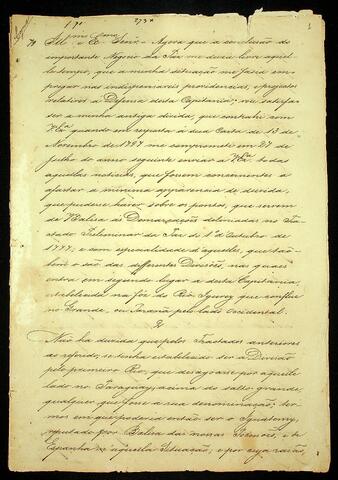 1ª 273
Ill.mo e Ex.mo Senr. - Agora que a conclusão do
importante Negocio da Paz me deixa livre aquel-
le tempo, que a minha situação me fazia em-
pregar nas indispensaveis providencias, e projectos
relativos a Defeza desta Capitania; vou satisfa-
zer a minha antiga divida, que contrahi com
V.Exª quando em resposta á sua Carta de 13 de
Novembro de 1797 me comprometti em 27 de
Julho do anno seguinte enviar a V.Exª todas
aquellas noticias, que fossem concernentes a
afastar a minima apparencia de duvida,
que pudesse haver sobre os pontos, que servem
de Balisa ás Demarcações deliniadas no Tra-
tado Preliminar da Paz de 1º d'Outubro de
1777, e com especialidade d'aquelles, que tão-
bem o são das differentes Divisões, nas quaes
entra em segundo lugar a desta Capitania,
estabelecida na fóz do Rio Igurey que conflue
no Grande, ou Paraná pelo lado Occidental.
Não ha duvida que pelos Tractados anteriores
ao referido, se tenha estabelecido ser a Divisão
pelo primeiro Rio, que desagoasse por aquelle
lado no Paraguay, acima do salto grande,
qualquer que fosse a sua denominação; ter-
mos em que poderia então ser o Iguatemy,
reputado por Balisa das nossas Possessões, e de
Espanha n'aquella situação, e por cuja razão,